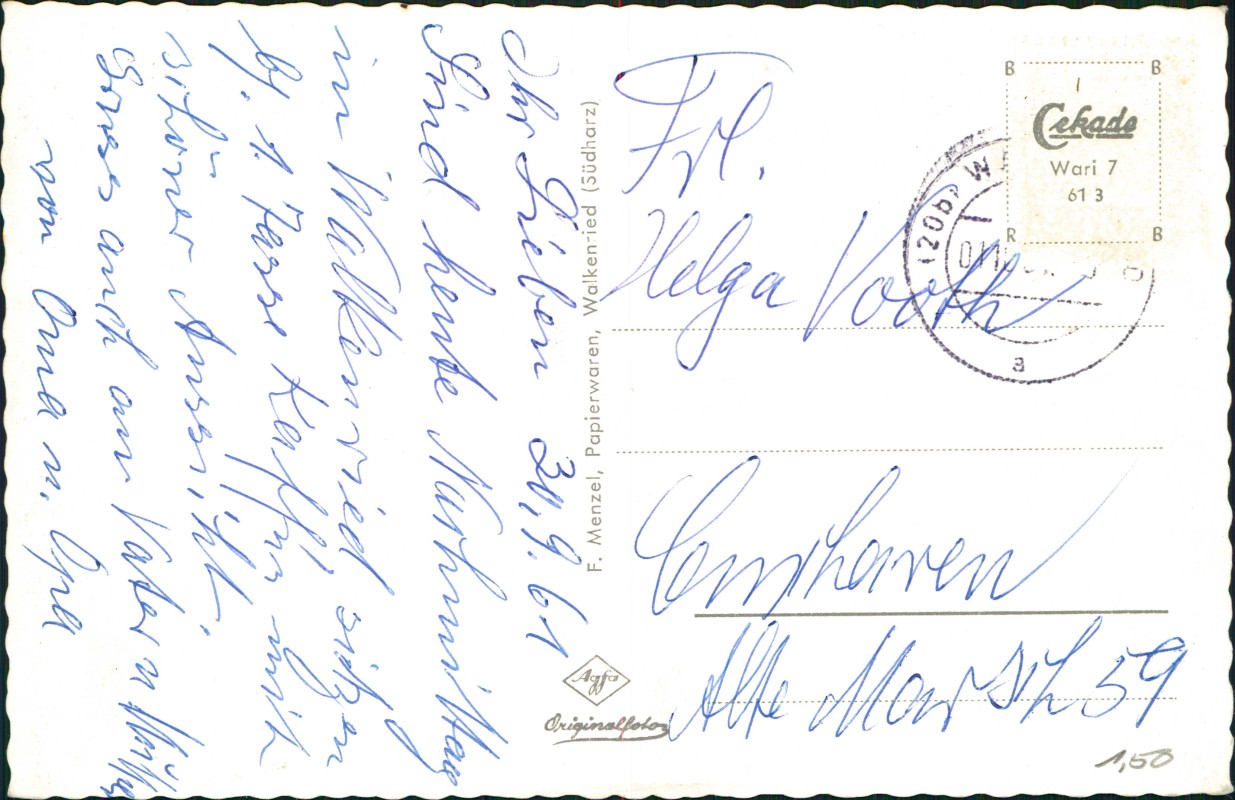 Ihr Lieben 30.9.61
Sind heute Nachmittag
in Walkenried sitzen
bei 1. Tasse Kaffee mit
schöner Aussicht.
Gruss auch an Vater u Mutter
von Oma u. Opa
F. Menzel, Papierwaren, Walkenried (Südharz)
Agfa
Originalfoto
Frl.
Helga Vooth
Cuxhaven
Alte Marsch 59
B B
Cekade
Wari 7
61 3
R B
(20b) W
a
1,50